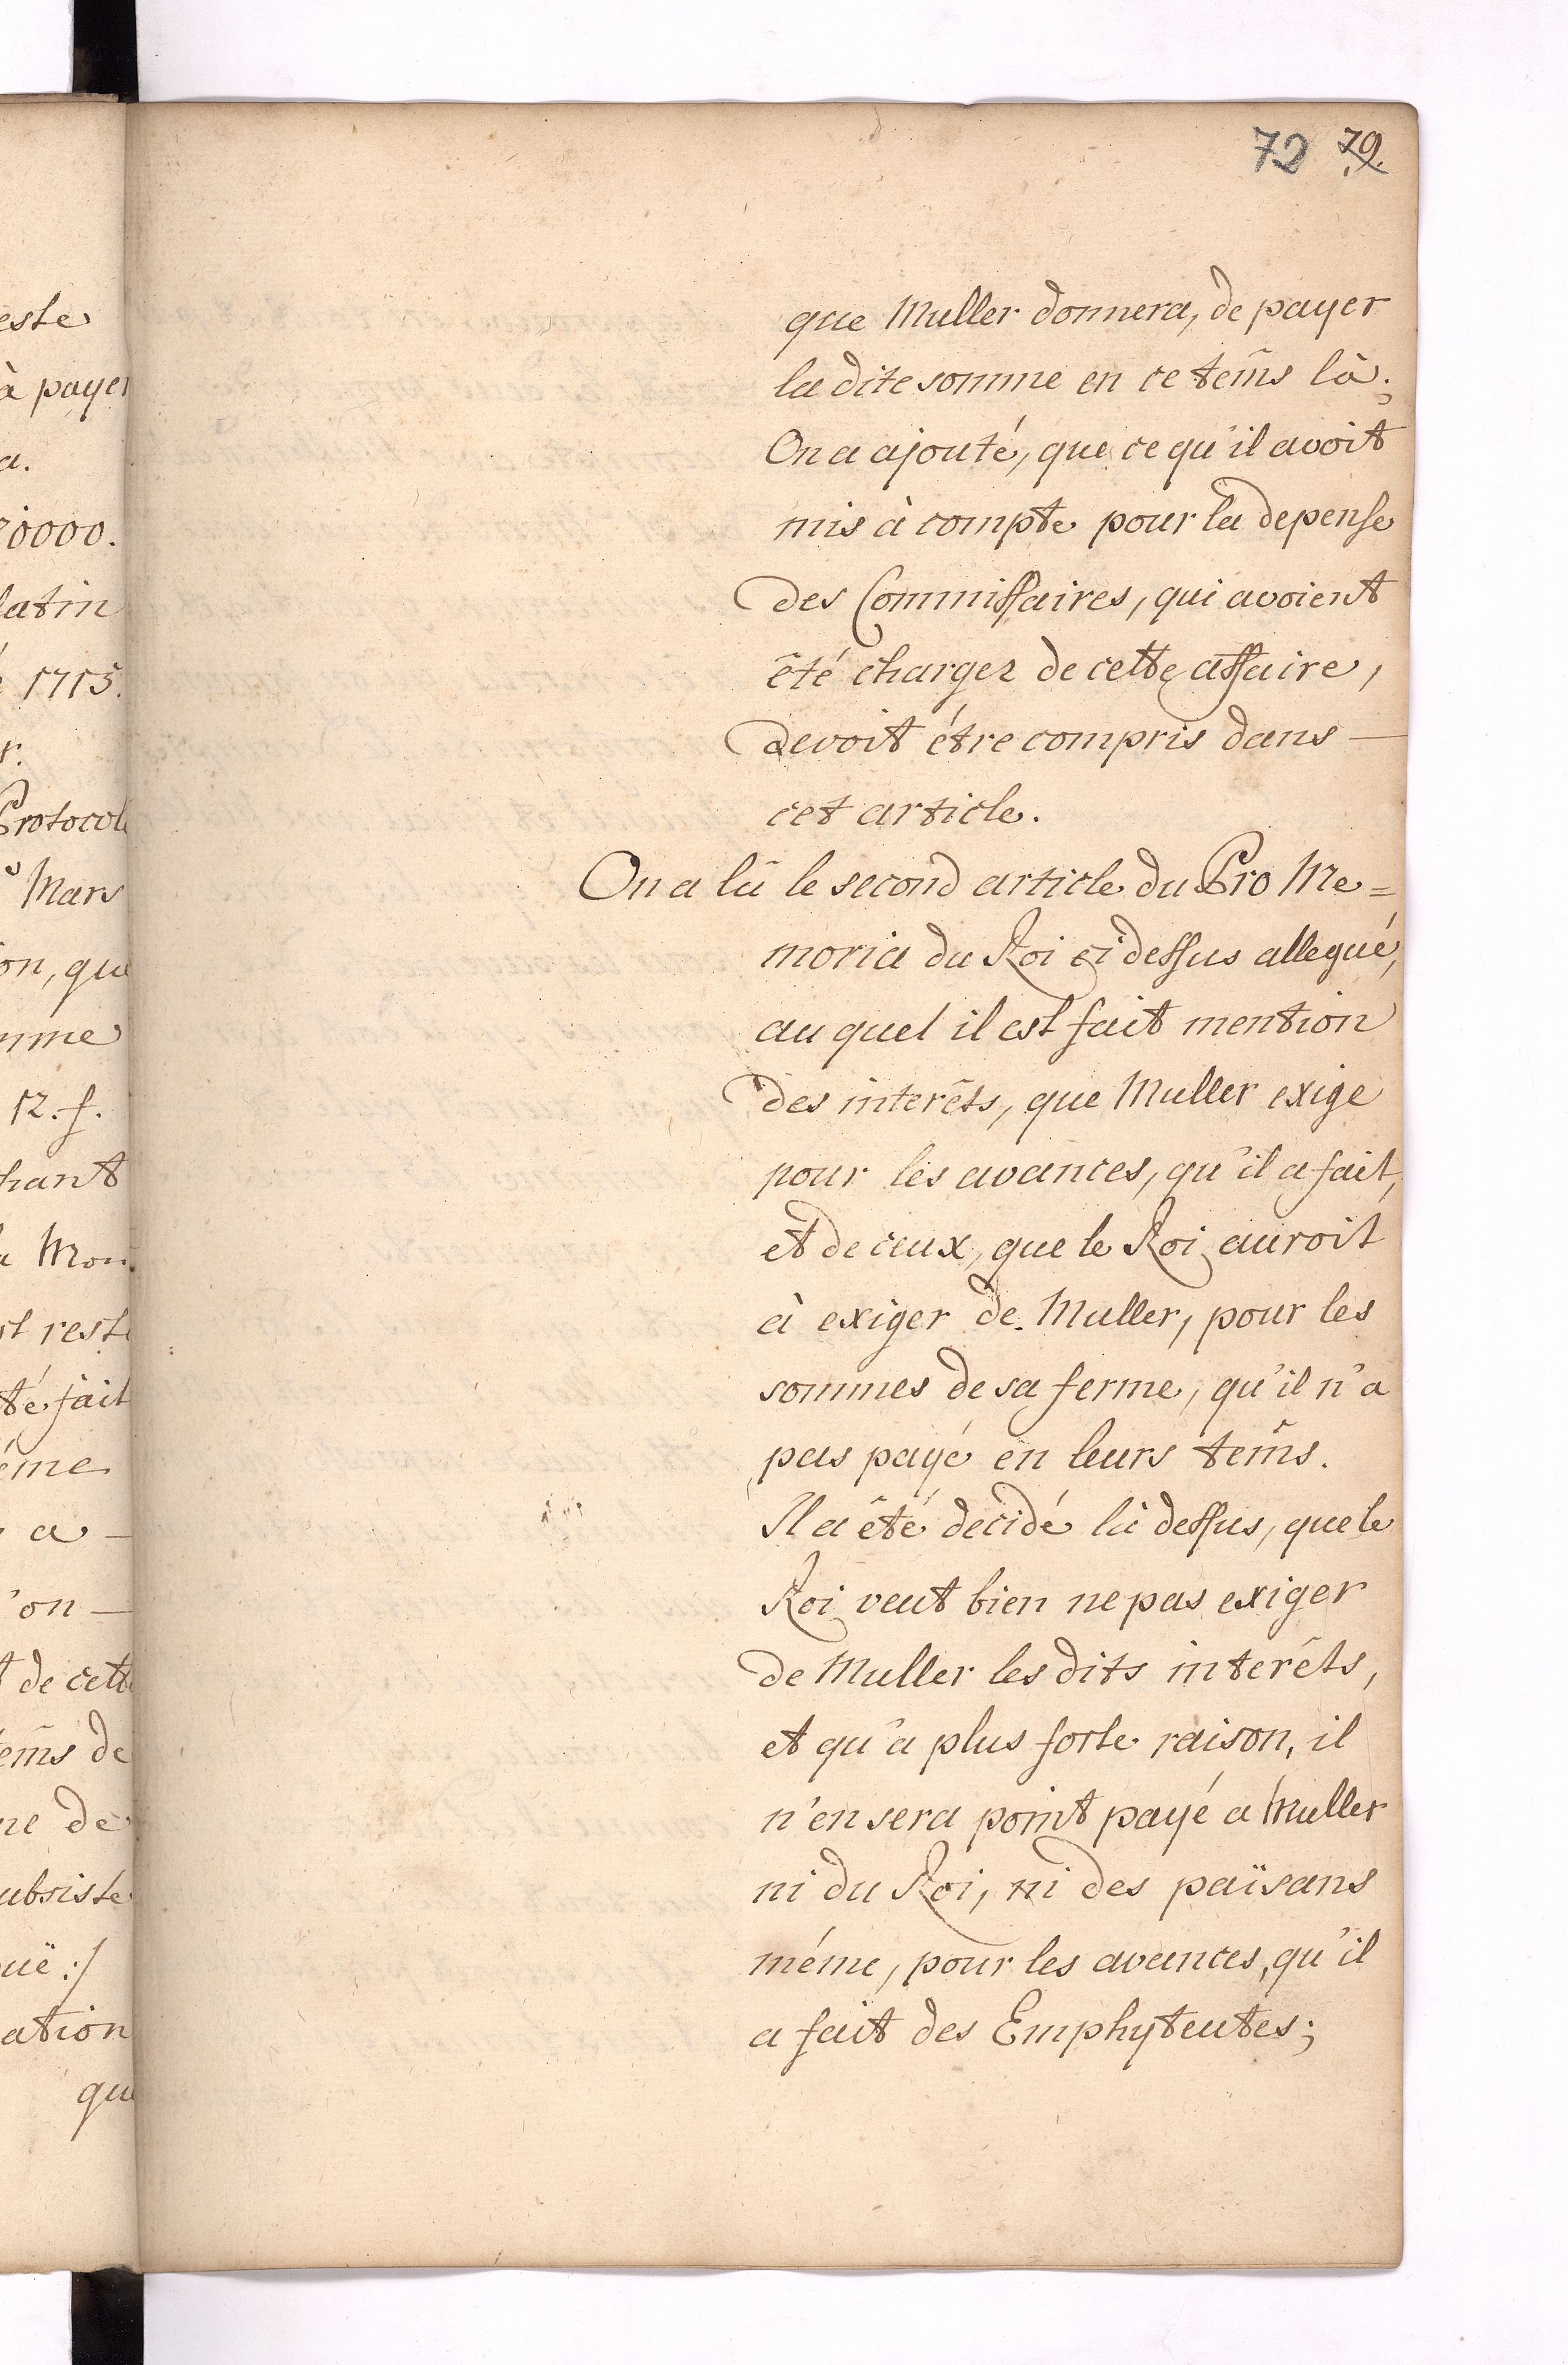 72 79.
que Muller donnera, de payer
la dite somme en ce tem̃s là;
On a ajouté, que ce qu'il avoit
mis à compte pour la depense
des Commissaires, qui avoient
êté chargez de cette affaire,
devoit être compris dans —
cet article.
On a lû le second article du Pro Me=
moria du Roi ci dessus allegué,
au quel il est fait mention
des interêts, que Muller exige
pour les avances, qu'il a fait,
et de ceux, que le Roi auroit
à exiger de Muller, pour les
sommes de sa ferme, qu'il n'a
pas payé en leurs tem̃s.
Il a êté decidé là dessus, que le
Roi veut bien ne pas exiger
de Muller les dits interêts,
et qu'a plus forte raison, il
n'en sera point payé a Muller
ni du Roi, ni des païsans
même, pour les avances, qu'il
a fait des Emphyteutes;
este
à payer
a.
0000.
latin
1715.
r.
Protocole
Mars
on, que
mme
12. f.
hant
a Mon
st reste
té fait
ême
a —
'on —
t de cette
tem̃s de
ne de
ubsiste
uë :/
ation
que